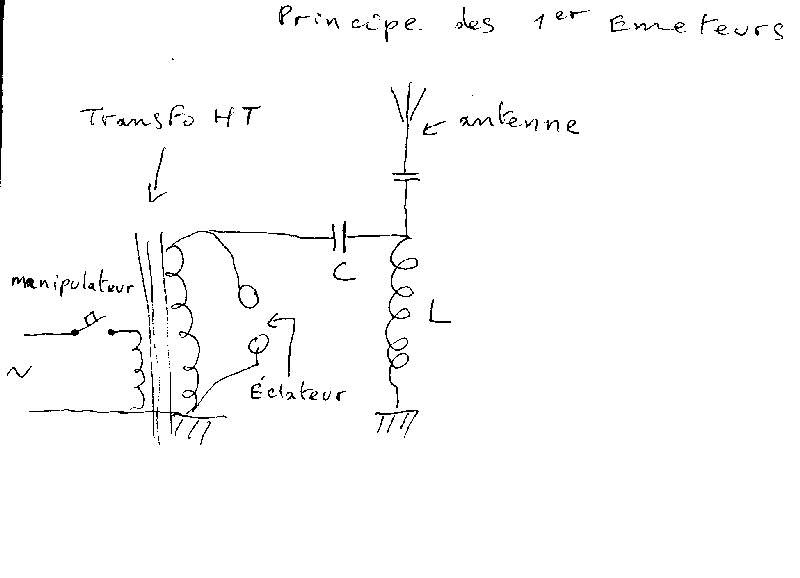 Principe des 1er Emeteurs
Transfo HT
antenne
manipulateur
C
L
~
Éclateur